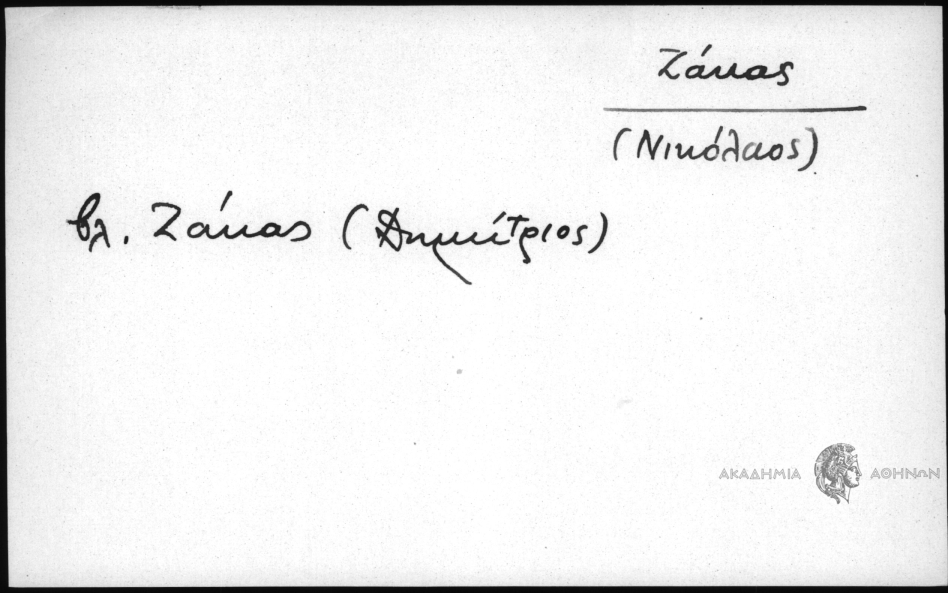 Ζάκας
(Νικόλαος)
βλ. Ζάκας (Δημήτριος)
ΑΚΑΔΗΜΙΑ ΑΘΗΝΩΝ